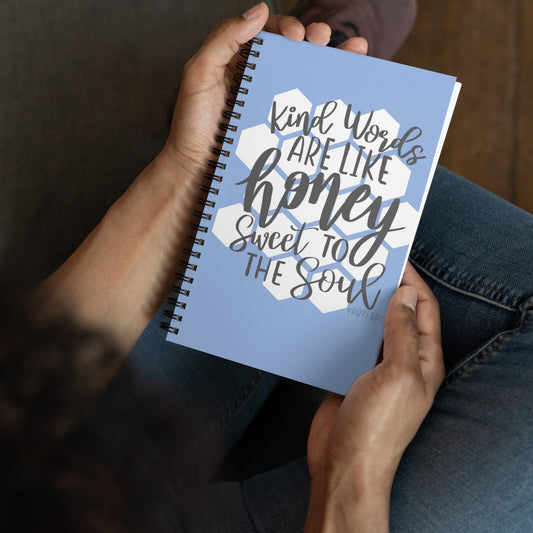 Kind Words
ARE LIKE
honey
Sweet TO
THE Soul
PROVERBS